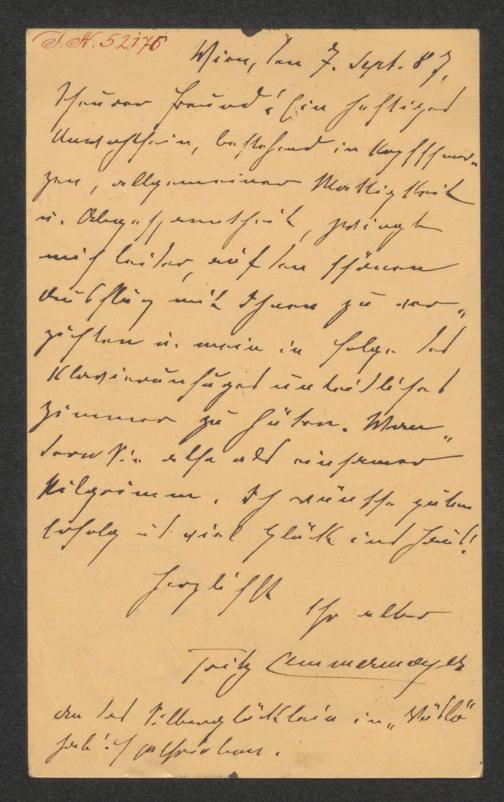 I. N. 52176
Wien, den 7. Sept. 87.
Theurer Freund! Ein heftiges
Unwohlsein, bestehend in Kopfschmer-
zen, allgemeiner Mattigkeit
u. Abgespanntheit, zwingt
mich leider, auf den schönen
Ausflug mit Ihnen zu ver-
zichten u. mein in Folge des
Klavierunfuges unleidliches
Zimmer zu hüten. Wan-
dern Sie also als einsamer
Pilgrimm. Ich wünsche guten
Erfolg u viel Glück ins Haus!
Herzlichst
Ihr alter
Fritz Lemmermayer
An das Silberglöcklein in
hab' ich geschrieben.